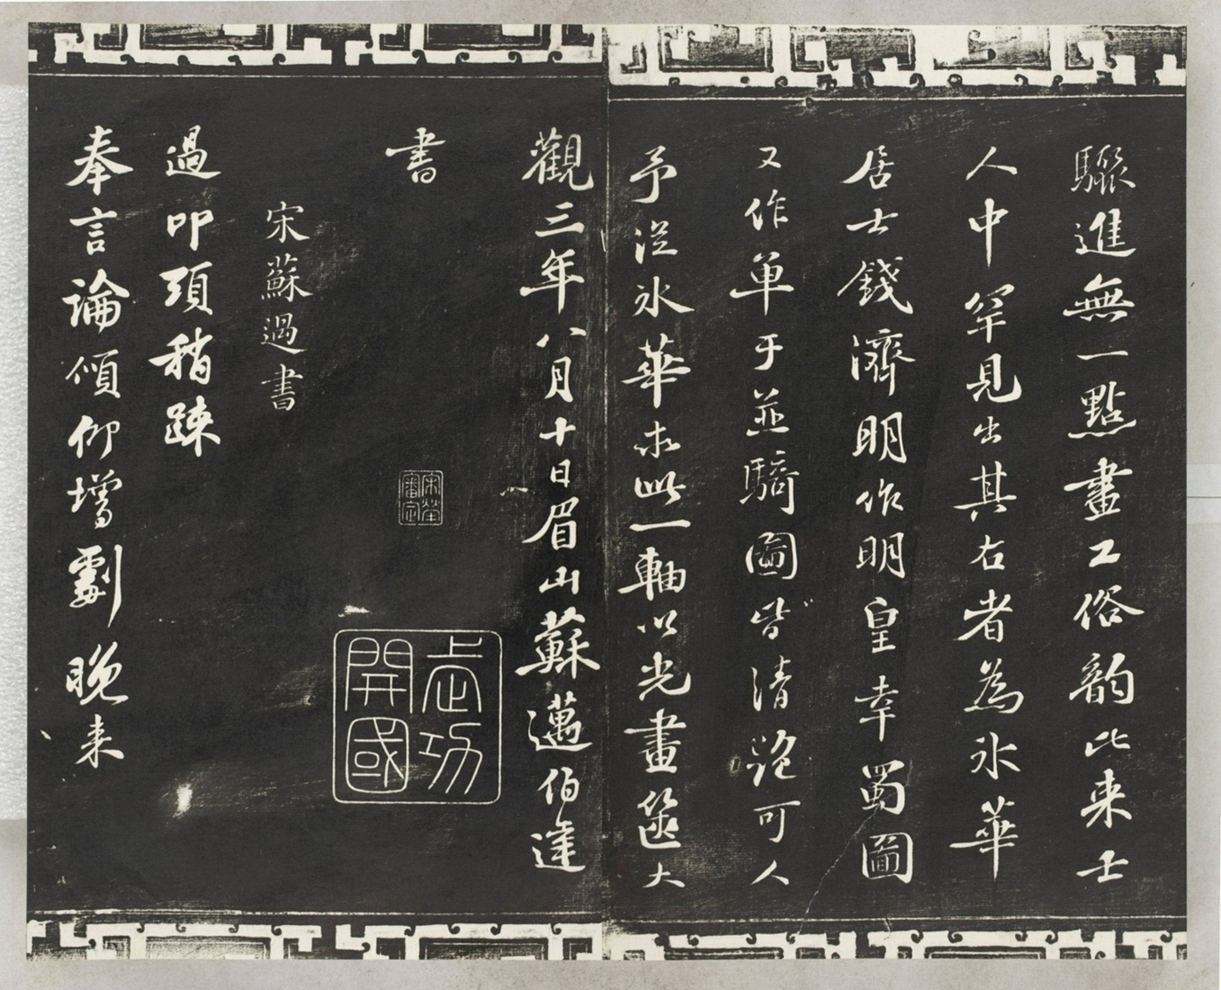 驟進無一點畫工俗韵比来士
人中罕見出其右者為氷華
居士錢濟明作明皇幸蜀圖
又作单于並騎圖皆清絶可人
予從氷華求此一軸以光畫篋大
觀三年八月十日眉山蘇邁伯達
書
宋犖審定
武功開國
宋蘇過書
過叩頭稍疎
奉言論傾仰增劇晚来